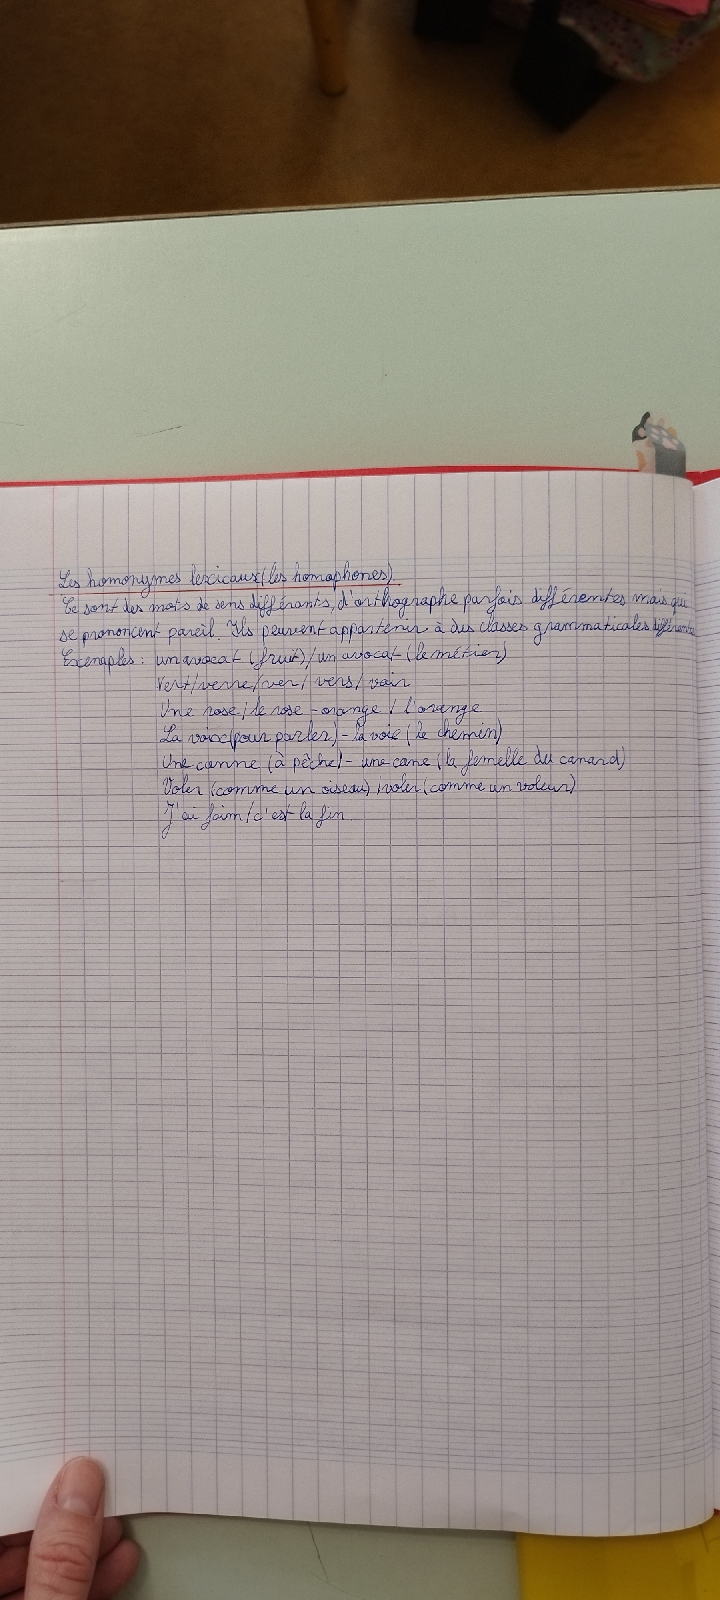 Les homonymes lexicaux (les homophones).
Ce sont des mots de sens différants, d'orthographe parfois différentes mais qui
se prononcent pareil. Ils peuvent appartenir à des classes grammaticales différentes
Exemples : un avocat (fruit)/un avocat (le métier)
Vert/verre/ver/vers/vair
Une rose/le rose - orange / l'orange
La voix(pour parler) - la voie (le chemin)
Une canne (à pêche) - une cane (la femelle du canard)
Voler (comme un oiseau) / voler (comme un voleur)
J'ai faim/c'est la fin.